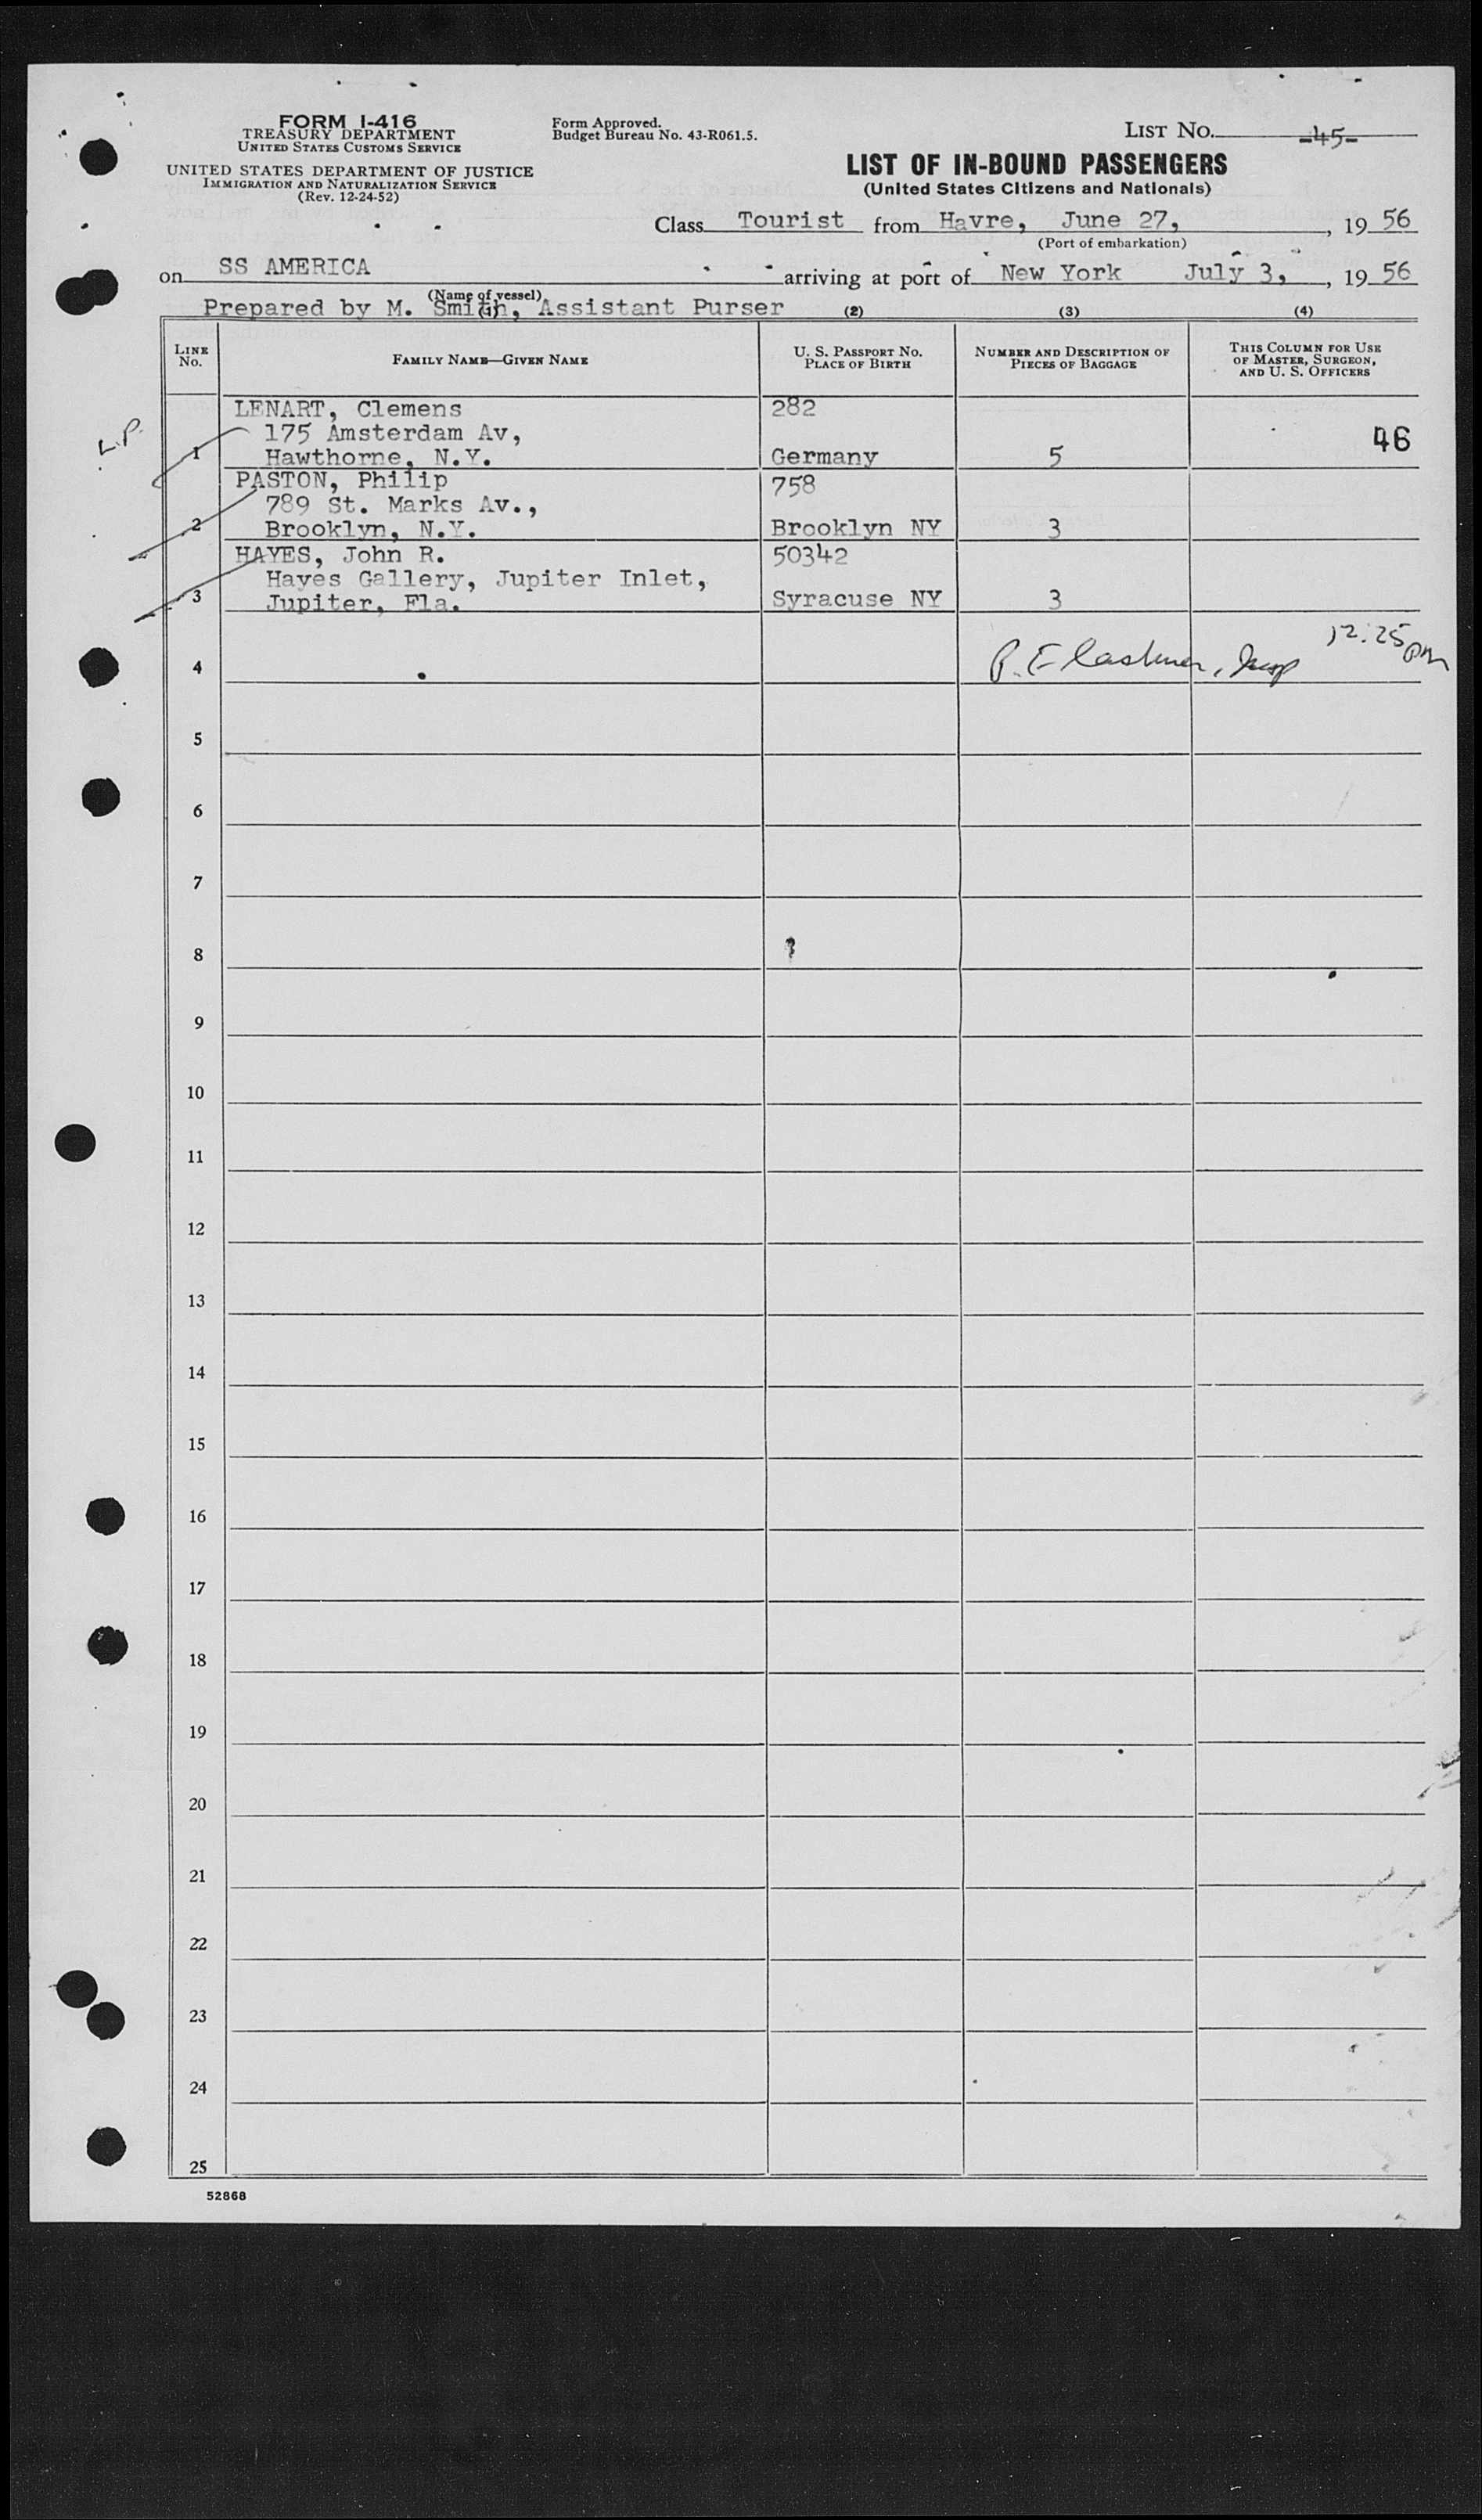 FORM I-416
TREASURY DEPARTMENT
UNITED STATES CUSTOMS SERVICE
UNITED STATES DEPARTMENT OF JUSTICE
IMMIGRATION AND NATURALIZATION SERVICE
(Rev. 12-24-52)
Form Approved.
Budget Bureau No. 43-R061.5.
LIST No. -45-
LIST OF IN-BOUND PASSENGERS
(United States Citizens and Nationals)
Class Tourist from Havre, June 27, , 19 56
(Port of embarkation)
on SS AMERICA arriving at port of New York July 3, , 19 56
(Name of vessel)
Prepared by M. Smith, Assistant Purser
(1) (2) (3) (4)
LINE No. FAMILY NAME—GIVEN NAME U. S. PASSPORT No. PLACE OF BIRTH NUMBER AND DESCRIPTION OF PIECES OF BAGGAGE THIS COLUMN FOR USE OF MASTER, SURGEON, AND U. S. OFFICERS
LENART, Clemens 282
L.P. 175 Amsterdam Av, 46
1 Hawthorne, N.Y. Germany 5
PASTON, Philip 758
789 St. Marks Av.,
2 Brooklyn, N.Y. Brooklyn NY 3
HAYES, John R. 50342
Hayes Gallery, Jupiter Inlet,
3 Jupiter, Fla. Syracuse NY 3
4 Insp 12:25 pm
5
6
7
8
9
10
11
12
13
14
15
16
17
18
19
20
21
22
23
24
25
52868